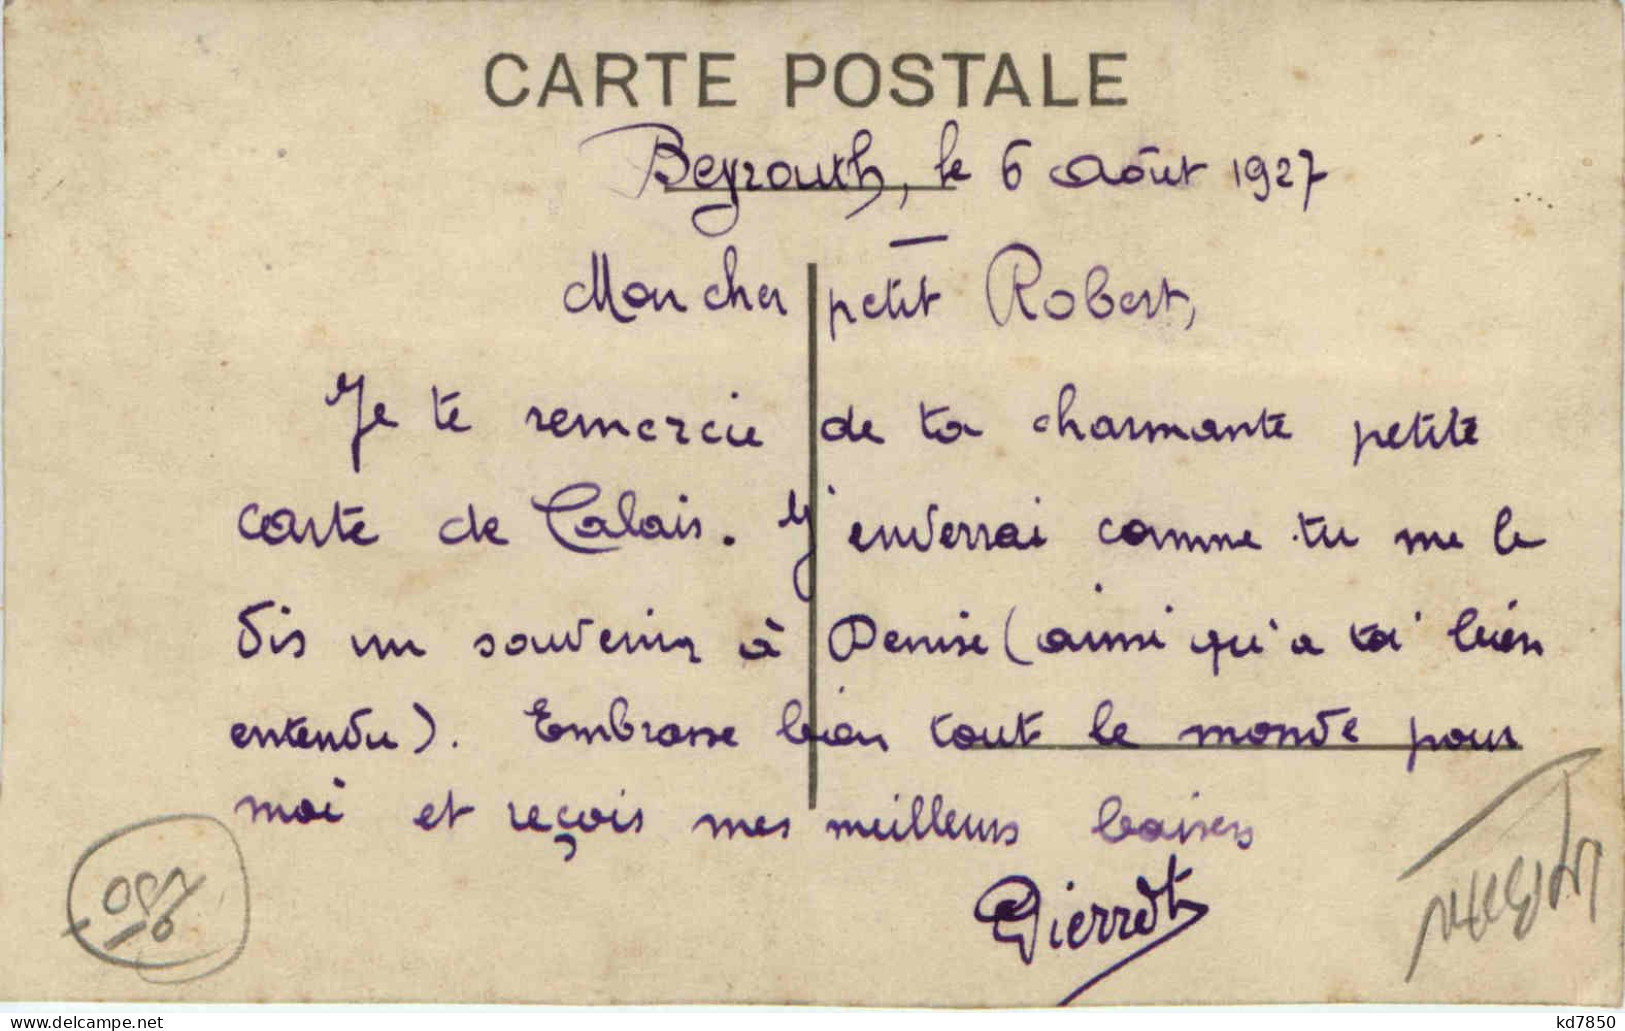 CARTE POSTALE
Beyrouth, le 6 Août 1927
Mon cher petit Robert,
Je te remercie de ta charmante petite
carte de Calais. J'enverrai comme tu me le
dis un souvenir à Denise (ainsi qu'a toi bien
entendu). Embrasse bien tout le monde pour
moi et reçois mes meilleurs baisers
Pierrot
delcampe.net
kd7850